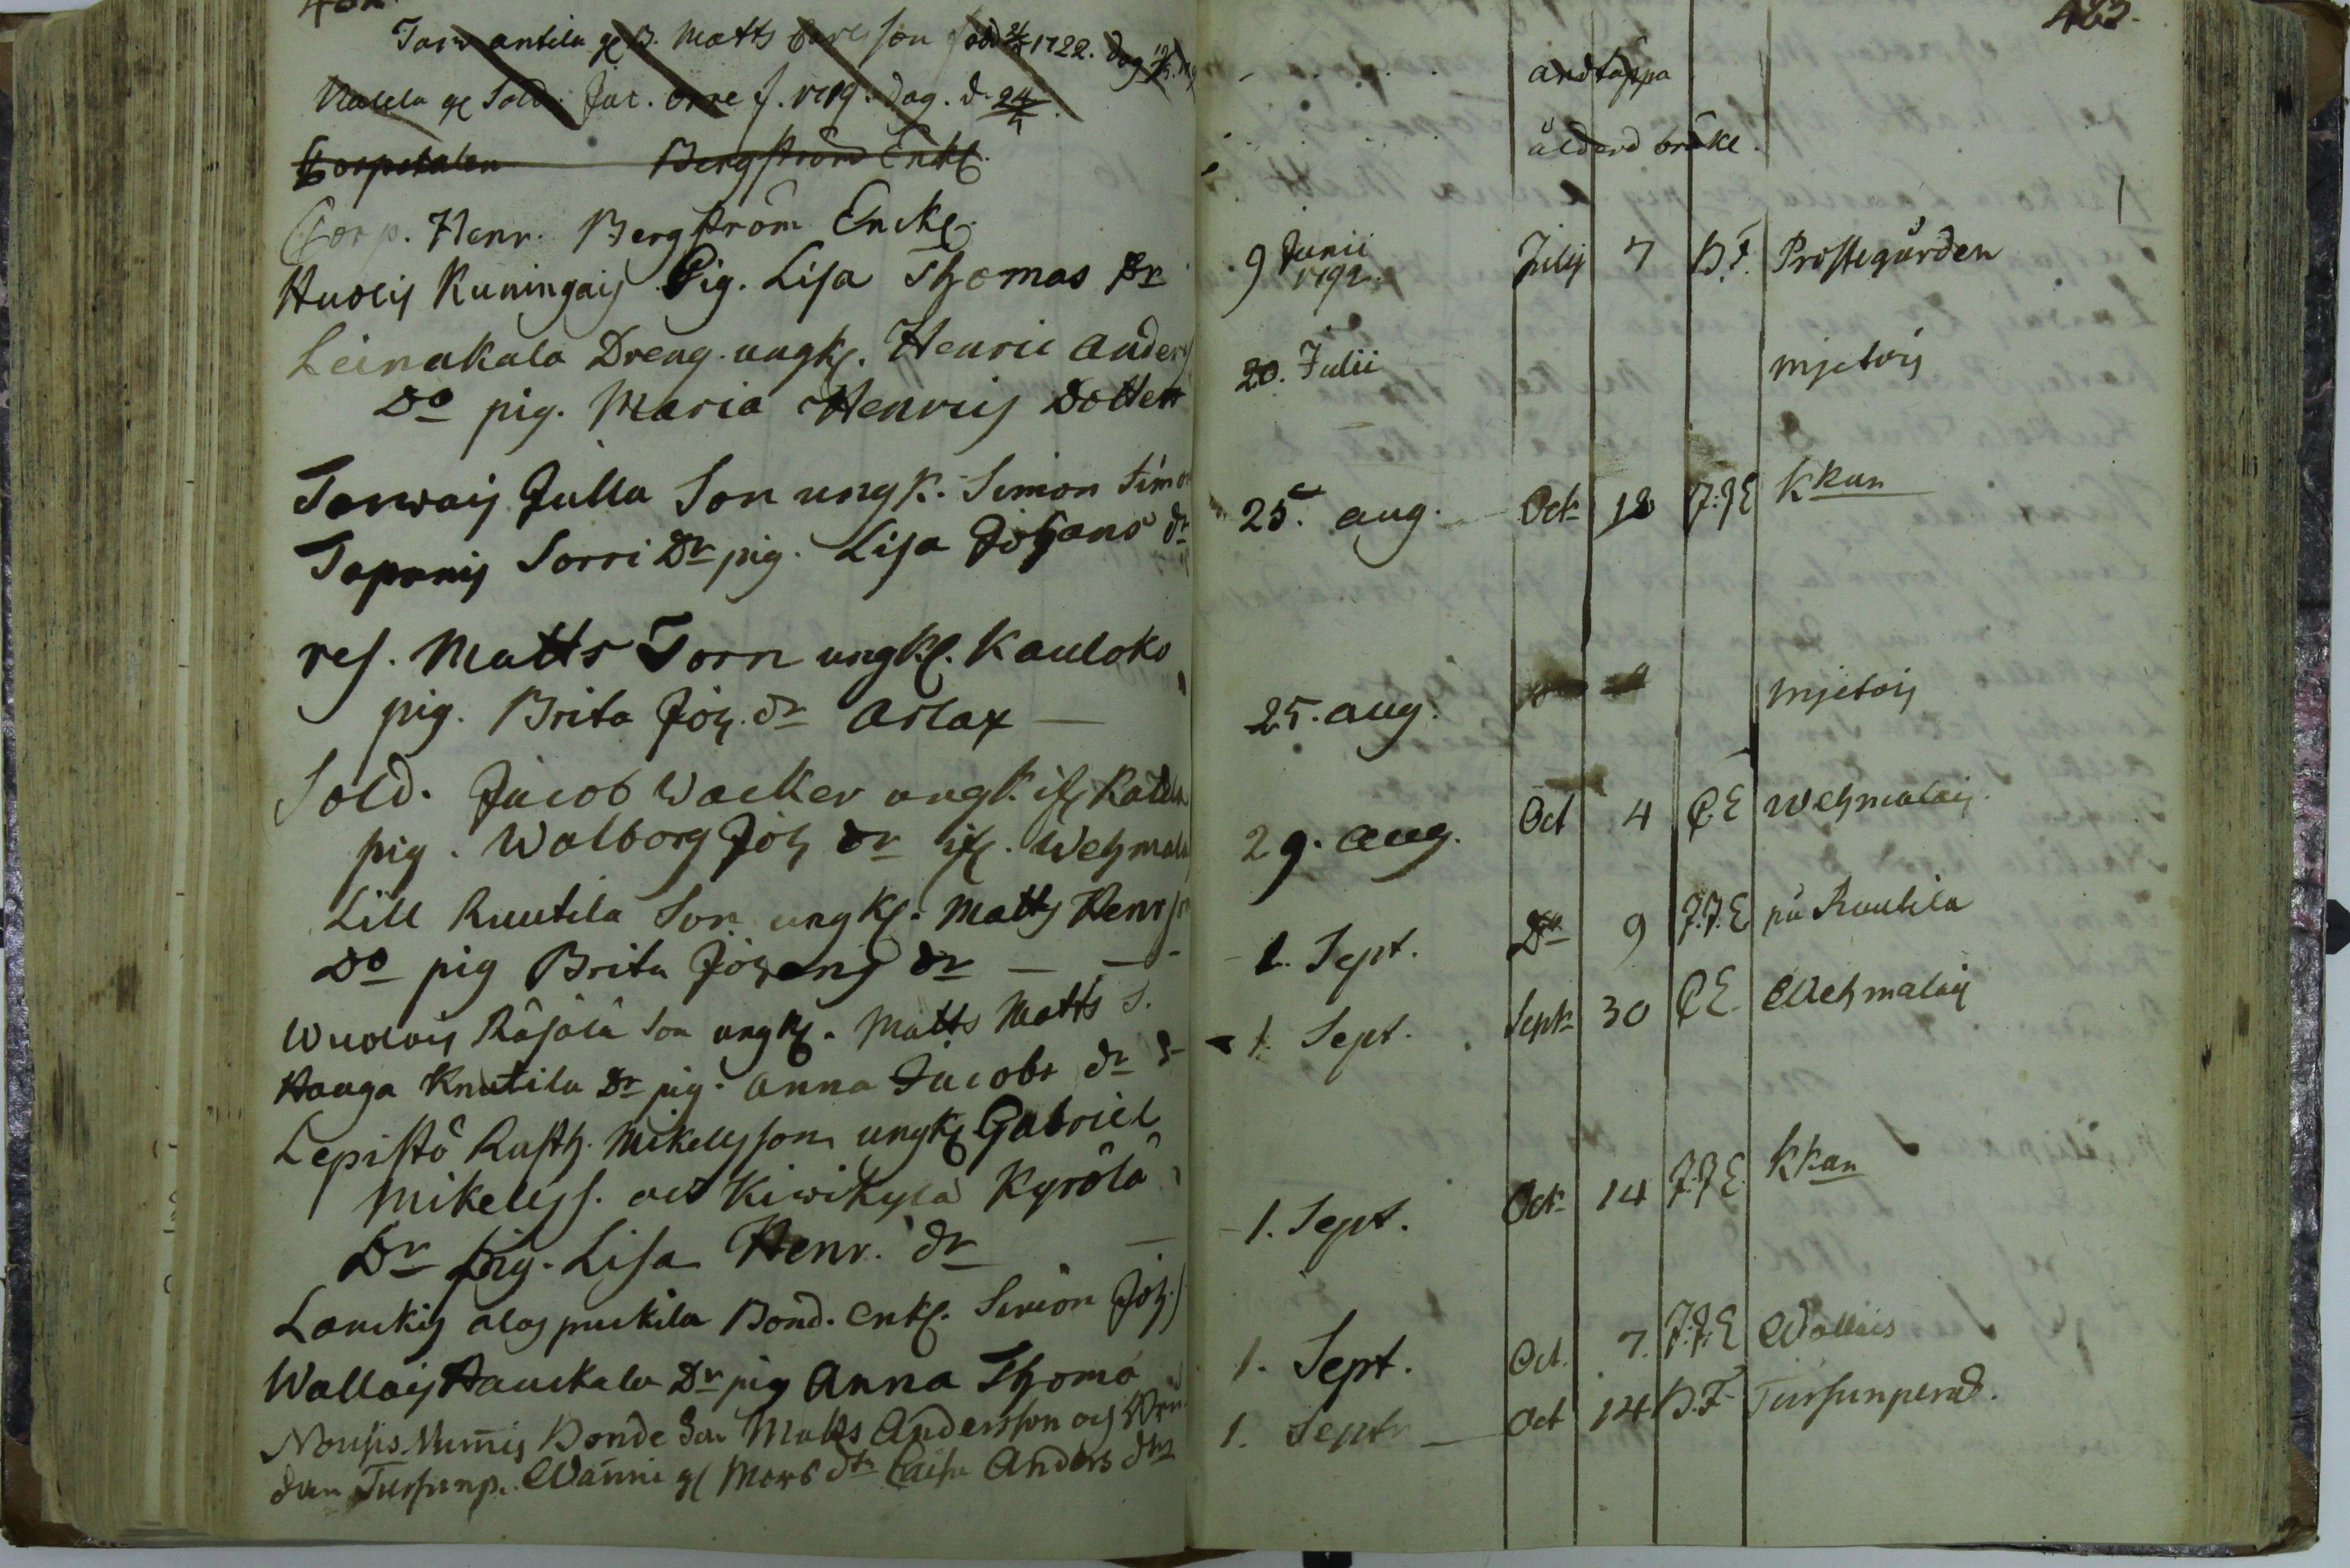 Matts född 1722. dag
Sold. Jac. Orre f. dag. d. 24
Bergström Enkl
Corp. Henr. Bergström Enckl.
Huolis Kuningais Pig. Lisa Thomas Dr
Leinakala Dreng. ungk. Henric Anders
Do pig. Maria Henrics Dotter
Tarwais Julla Son ungk. Simon Simo
Tapanis Sorri Dr pig. Lisa Johans dr
res. Matts Torn ungkl. Kauloko
pig. Brita Joh. dr Arlax
Sold. Jacob Wacker ungk. ifr.
pig. Walborg Joh dr ifr. Wehmala
Lill Ruutila Son ungk. Matts Henrs
Do pig Brita Johans dr
Räjälä Son ungk. Matts Matts S.
Hauga Knutila Dr pig. Anna Jacobs dr
Lepistö Rusth. Mikelsson ungk Gabriel
Mikelss. och Kiwikylä Kyrölä
Dr pig. Lisa Henr. dr
Lanckis alas puckila Bond. Enkl. Simon Joh.
Wallais Hauckala Dr pig Anna Thoma
Nousis Bonde Son Matts Andersson och
Caisa Anders dtr
463.
andtäppa
ålderd bräkl.
9 Junii 1792. July 7 B.F. Prostegården
20. Julii Mjetois
25. aug. Oct 18 J.J.E Kkan
25. aug. Mjetois
29. aug. Oct 4 C.E Wehmalais
1. Sept. Do 9 J.J.E på Ruutila
1. Sept. Sept 30 C.E. Wehmalais
1. Sept. Oct 14 J.J.E. Kkan
1. Sept. Oct. 7. J.J.E Wallais
1. Septr Oct 14 B.F. Tursunperä.